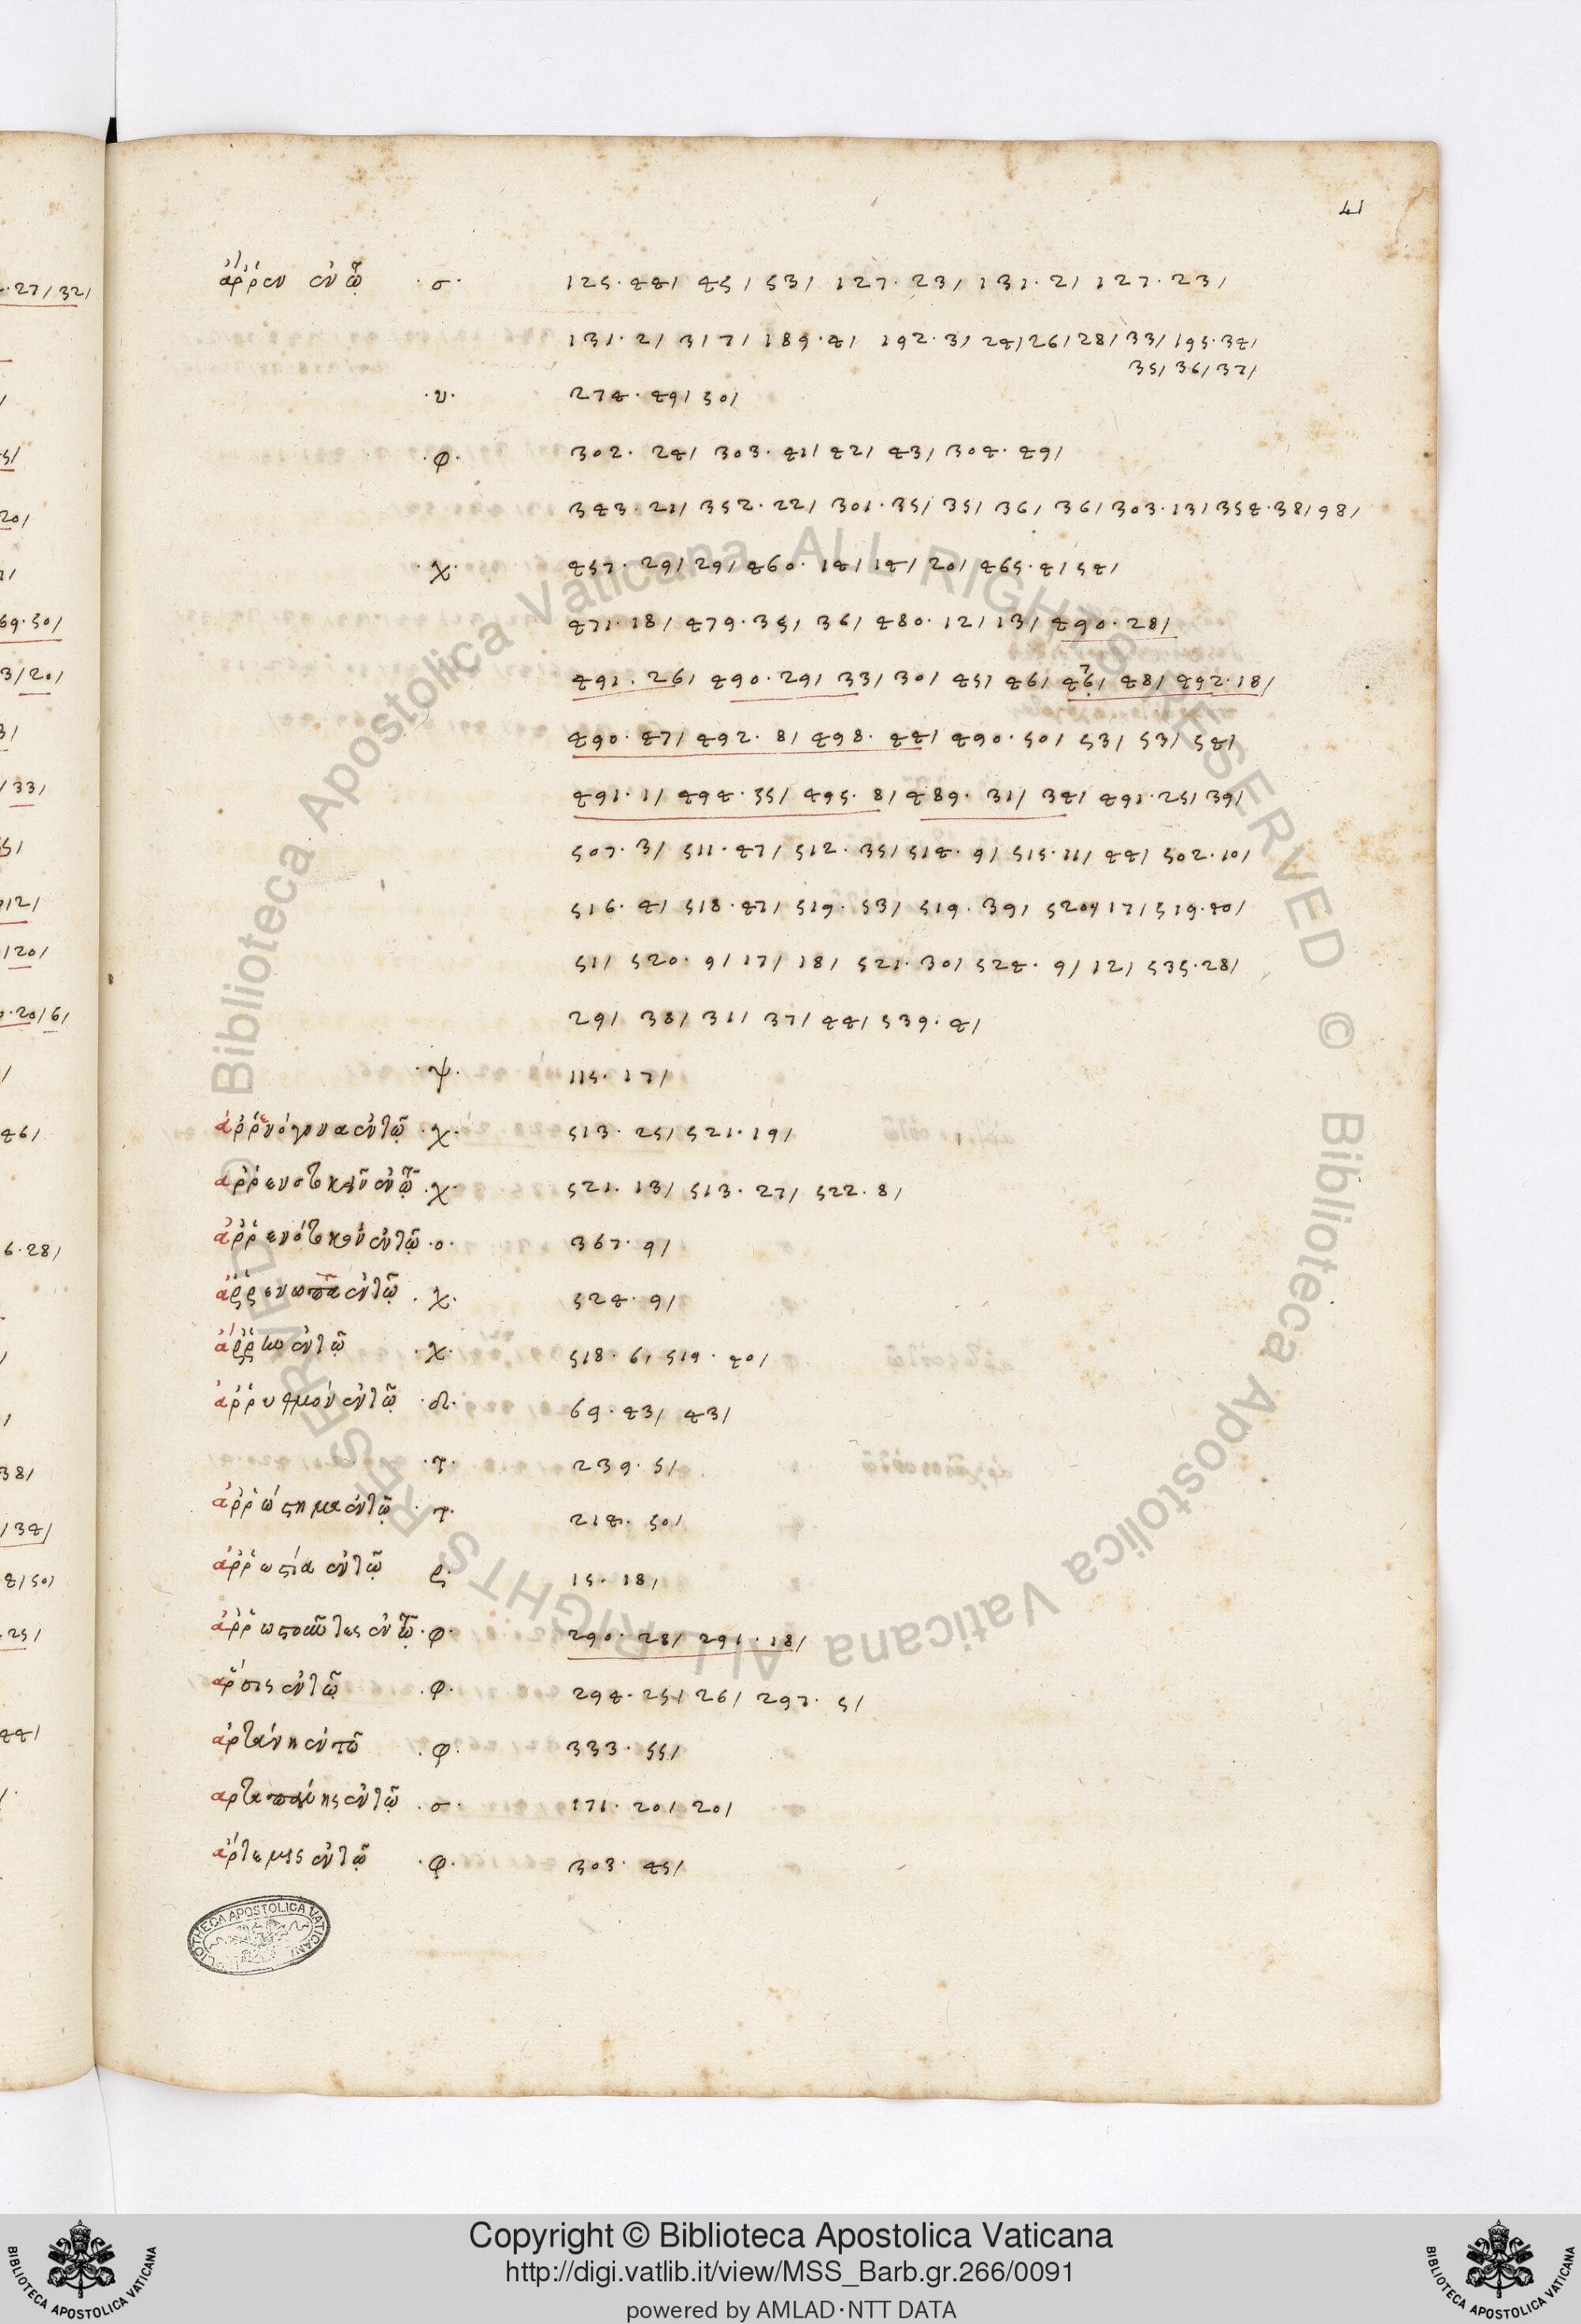 41
ἄρρεν ἐν τῷ ·σ· 125· 44/ 45/ 53/ 127· 23/ 131· 2/ 127· 23/
131· 2/ 3/ 7/ 189· 4/ 192· 3/ 24/ 26/ 28/ 33/ 195· 34/
35/ 36/ 37/
·υ· 274· 49/ 50/
·φ· 302· 24/ 303· 41/ 42/ 43/ 304· 49/
343· 21/ 352· 22/ 301· 35/ 35/ 36/ 36/ 303· 13/ 354· 38/ 98/
·χ· 457· 29/ 29/ 460· 14/ 14/ 20/ 465· 4/ 54/
471· 18/ 479· 35/ 36/ 480· 12/ 13/ 490· 28/
491· 26/ 490· 29/ 33/ 30/ 45/ 46/ 46/ 48/ 492· 18/
490· 47/ 492· 8/ 498· 44/ 490· 50/ 53/ 53/ 54/
491· 1/ 494· 35/ 495· 8/ 489· 31/ 34/ 491· 25/ 39/
507· 3/ 511· 47/ 512· 35/ 514· 9/ 515· 11/ 44/ 502· 10/
516· 4/ 518· 47/ 519· 53/ 519· 39/ 520/ 17/ 519· 40/
51/ 520· 9/ 17/ 18/ 521· 30/ 524· 9/ 12/ 535· 28/
29/ 38/ 31/ 37/ 44/ 539· 4/
·ψ· 115· 17/
ἀρρενόγονα ἐν τῷ ·χ· 513· 25/ 521· 19/
ἀρρενοτοκεῖν ἐν τῷ ·χ· 521· 13/ 513· 27/ 522· 8/
ἐν τῷ ·ο· 367· 9/
ἐν τῷ ·χ· 524· 9/
ἐν τῷ ·χ· 518· 6/ 519· 40/
ἀρρυθμον ἐν τῷ ·δ· 69· 43/ 43/
·τ· 239· 5/
ἀρρώστημα ἐν τῷ ·τ· 214· 50/
ἀρρωστία ἐν τῷ ρ· 15· 18/
ἐν τῷ ·φ· 290· 28/ 291· 18/
ἄρσις ἐν τῷ ·φ· 294· 25/ 26/ 297· 5/
ἀρτάνη ἐν τῷ ·φ· 333· 55/
ἐν τῷ ·σ· 171· 20/ 20/
ἄρτεμις ἐν τῷ ·φ· 303· 45/
Copyright © Biblioteca Apostolica Vaticana
http://digi.vatlib.it/view/MSS_Barb.gr.266/0091
powered by AMLAD·NTT DATA